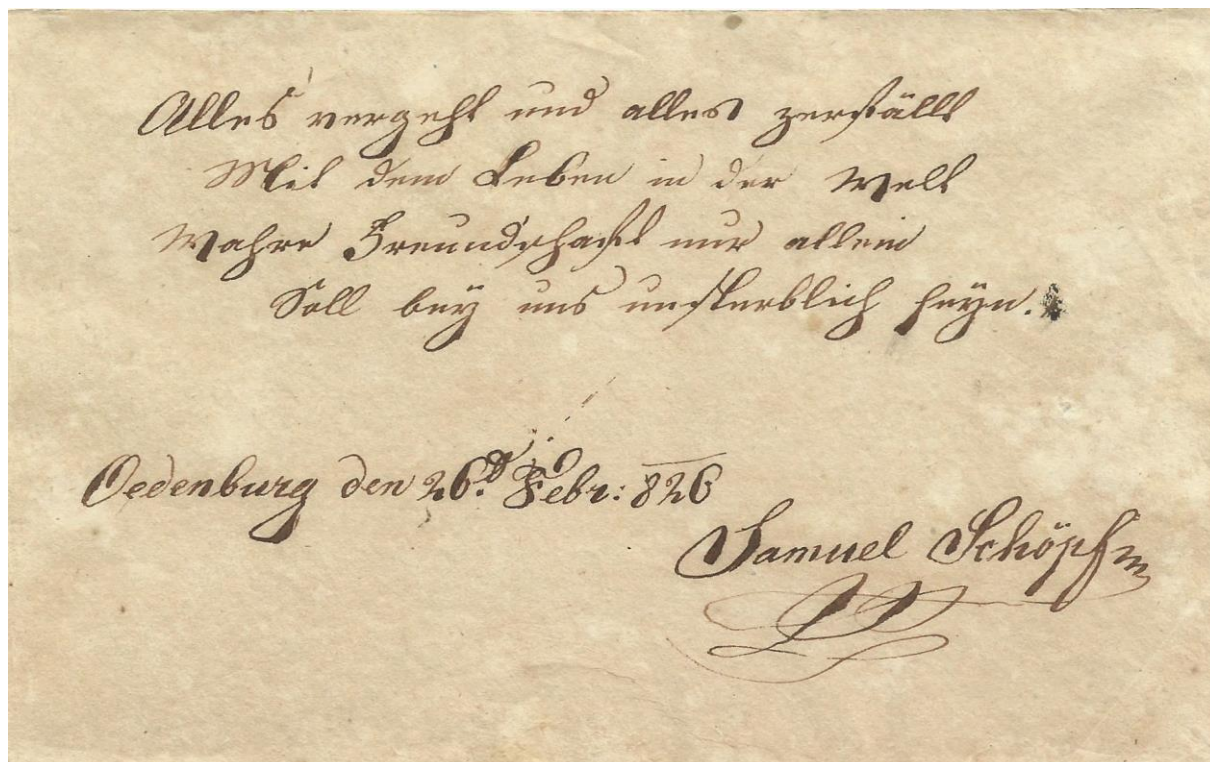 Alles vergeht und alles zerfällt
Mit dem Leben in der Welt
Wahre Freundschaft nur allein
Soll bey uns unsterblich seyn.
Oedenburg den 26. Febr: 826
Samuel Schöpf